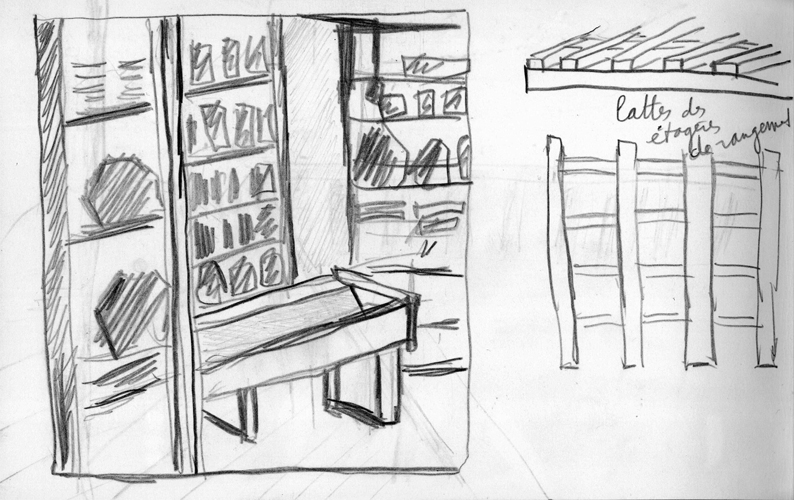 lattes des
étagères
de rangement